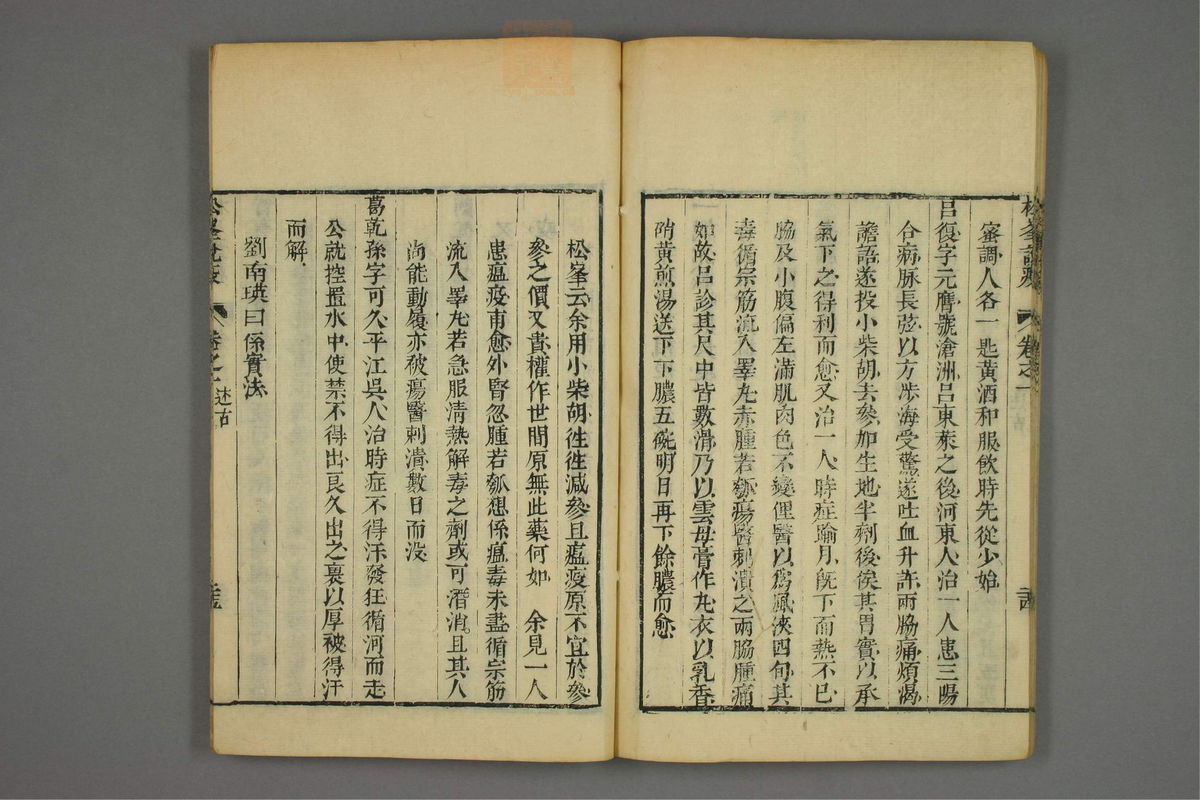 蜜調人各一匙黃酒和服飲時先從少始
呂復字元膺號滄洲呂東萊之後河東人治一人患三陽
合病脉長弦以方涉海受驚遂吐血升許兩脇痛煩渴
譫語遂投小柴胡去參加生地半劑後俟其胃實以承
氣下之得利而愈又治一人時症踰月既下而熱不已
脇及小腹偏左滿肌肉色不變俚醫以為風浹四旬其
毒循宗筋流入睪丸赤腫若瓠瘍醫刺潰之兩脇腫痛
如故呂診其尺中皆數滑乃以雲母膏作丸衣以乳香
硝黃煎湯送下下膿五碗明日再下餘膿而愈
松峯說疫
卷之一
述古
松峯云余用小柴胡徃徃減參且瘟疫原不宜於參
參之價又貴權作世間原無此藥何如 余見一人
患瘟疫甫愈外腎忽腫若瓠想係瘟毒未盡循宗筋
流入睪丸若急服清熱解毒之劑或可潛消且其人
尚能動履亦被瘍醫刺潰數日而沒
葛乾孫字可久平江吳人治時症不得汗發狂循河而走
公就控置水中使禁不得出良久出之裹以厚被得汗
而解
劉南瑛曰係實法
松峯說疫
卷之一
述古